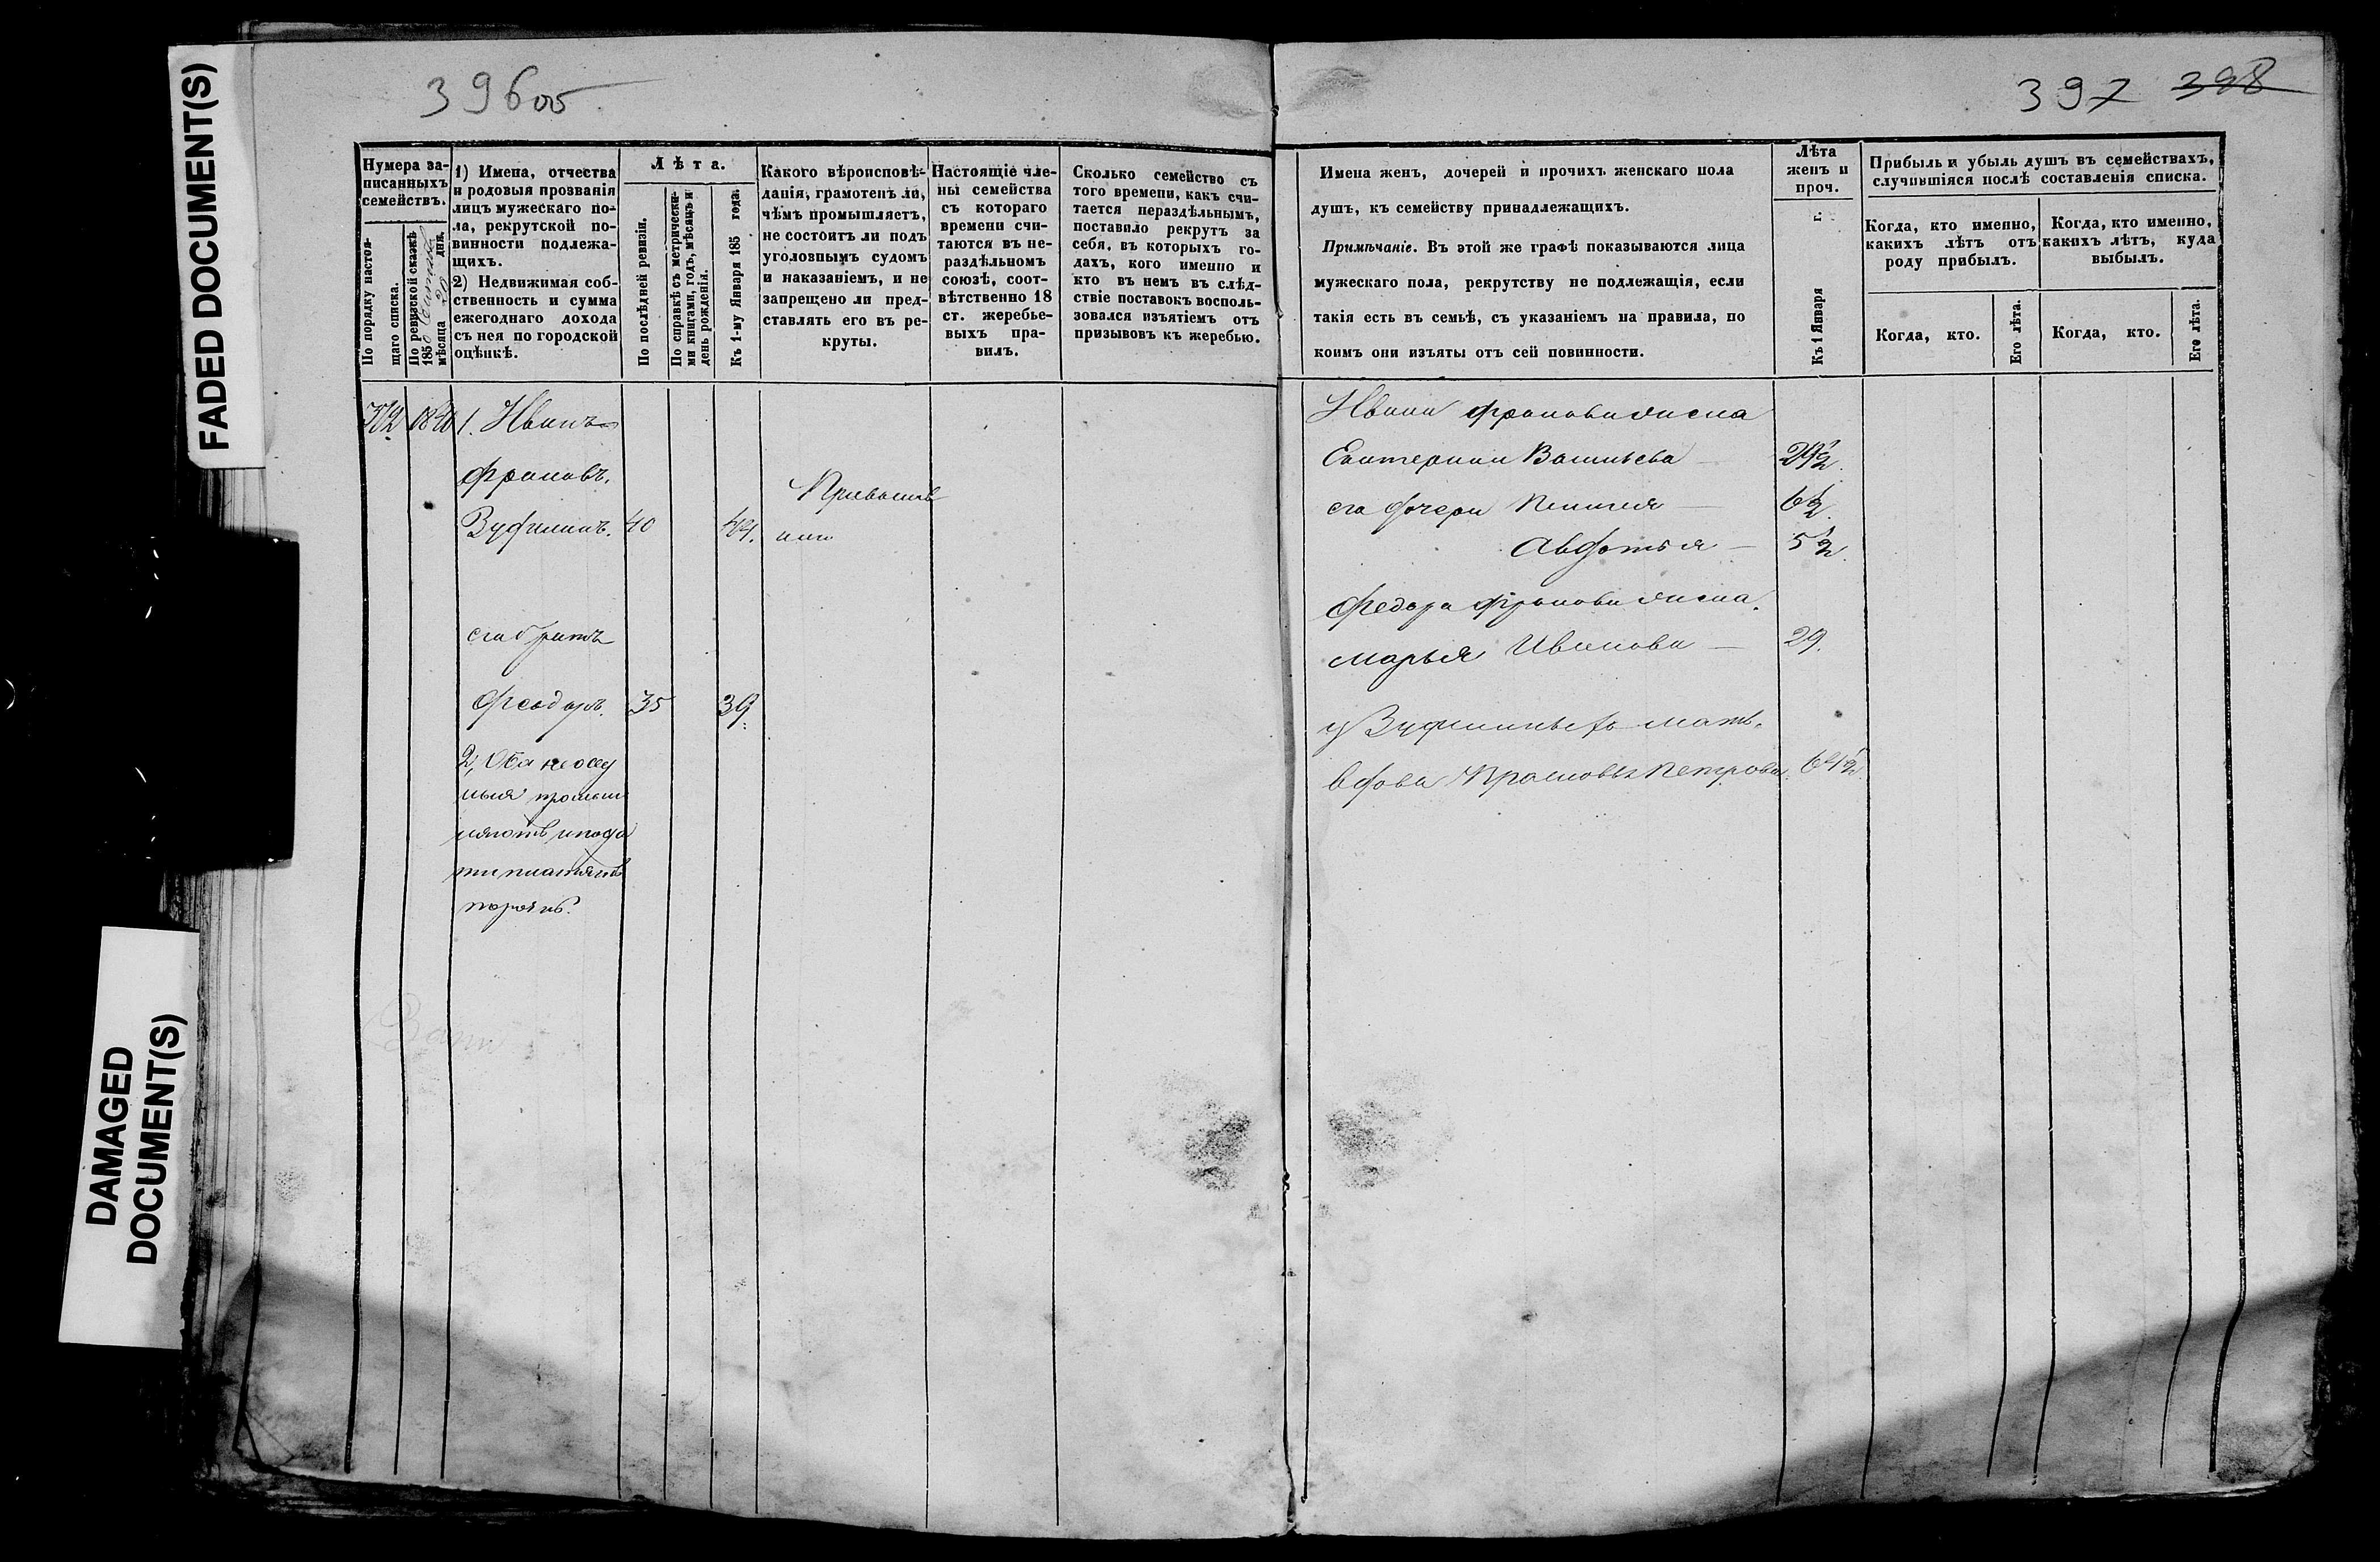 FADED DOCUMENT(S)
DAMAGED
DOCUMENT(S)
396об.
Нумера за-
писанныхъ
семействъ.
По порядку настоя-
щаго списка.
По ревизской сказкѣ
1850
мѣсяца 20 дня.
1) Имена, отчества
и родовыя прозванія
лицъ мужескаго по-
ла, рекрутской по-
винности подлежа-
щихъ.
2) Недвижимая соб-
ственность и сумма
ежегоднаго дохода
съ нея по городской
оцѣнкѣ.
Лѣта.
По послѣдней ревизіи.
По справкѣ съ метрически-
ми книгами, годъ, мѣсяцъ и
день рожденія.
Къ 1-му Января 185 года.
Какого вѣроисповѣ-
данія, грамотенъ ли,
чѣмъ промышляетъ,
не состоитъ ли подъ
уголовнымъ судомъ
и наказаніемъ, и не
запрещено ли пред-
ставлять его въ ре-
круты.
Настоящіе чле-
ны семейства
съ котораго
времени счи-
таются въ не-
раздѣльномъ
союзѣ, соот-
вѣтственно 18
ст. жеребье-
выхъ пра-
вилъ.
Сколько семейство съ
того времени, какъ счи-
тается нераздѣльнымъ,
поставило рекрутъ за
себя, въ которыхъ го-
дахъ, кого именно и
кто въ немъ въ слѣд-
ствіе поставокъ восполь-
зовался изъятіемъ отъ
призывовъ къ жеребью.
372 1. Иванъ
Фроловъ.
Зуфилинъ. 40 44.
его братъ
Феодоръ. 35 39.
2, Оба
промыш
ляютъ и пода
ти платятъ
порознь.
397 398
Имена женъ, дочерей и прочихъ женскаго пола
душъ, къ семейству принадлежащихъ.
Примѣчаніе. Въ этой же графѣ показываются лица
мужескаго пола, рекрутству не подлежащія, если
такія есть въ семьѣ, съ указаніемъ на правила, по
коимъ они изъяты отъ сей повинности.
Лѣта
женъ и
проч.
Къ 1 Января г.
Прибыль и убыль душъ въ семействахъ,
случившіяся послѣ составленія списка.
Когда, кто именно,
какихъ лѣтъ отъ
роду прибылъ.
Когда, кто именно,
какихъ лѣтъ, куда
выбылъ.
Когда, кто.
Его лѣта.
Когда, кто.
Его лѣта.
Ивана Фролова жена
Екатерина Васильева — 29½.
его дочери Пелагея — 6½.
Авдотья — 5½.
Федора Фролова жена.
Марья Иванова — 29.
у мать.
вдова Петрова. 64½.